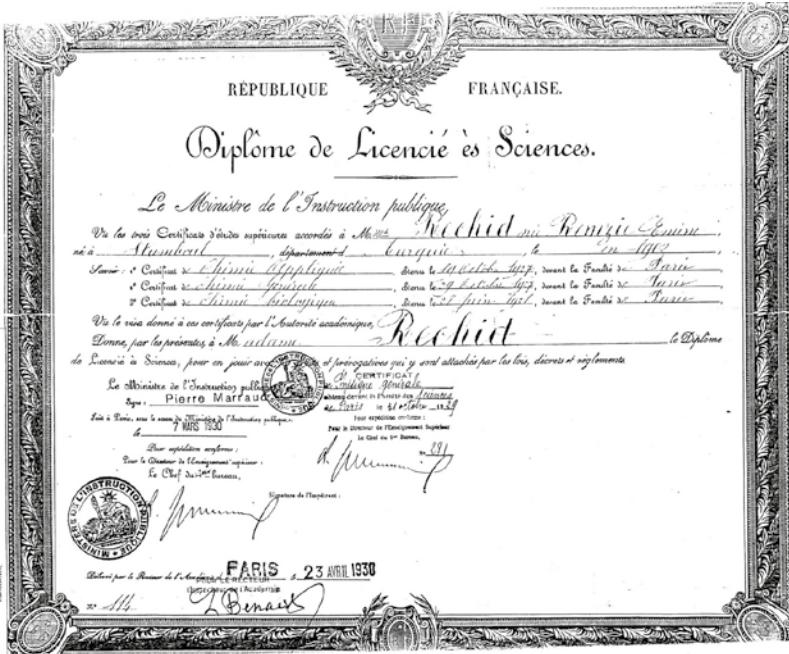 RF
RÉPUBLIQUE FRANÇAISE.
Diplôme de Licencié ès Sciences.
Le Ministre de l'Instruction publique,
Vu les trois Certificats d'études supérieures accordés à M Rechid née Remzié Emine,
né à Stamboul, département d Turquie, le en 1902
Savoir: 1° Certificat de Chimie Appliquée, obtenu le 19 octobre 1927, devant la Faculté de Paris
2° Certificat de chimie générale, obtenu le 29 octobre 1927, devant la Faculté de Paris
3° Certificat de chimie biologique, obtenu le juin, devant la Faculté de Paris
Vu le visa donné à ces certificats par l'Autorité académique,
Donne, par les présentes, à Madame Rechid le Diplôme
de Licencié ès Sciences, pour en jouir avec et prérogatives qui y sont attachés par les lois, décrets et règlements.
Le Ministre de l'Instruction publique
Signé: Pierre Marraud
Fait à Paris, sous le sceau du Ministère de l'Instruction publique,
le 7 MARS 1930
Pour expédition conforme:
Pour le Directeur de l'Enseignement supérieur:
Le Chef du 1er bureau,
CERTIFICAT
générale
obtenu devant la Faculté des Sciences
de Paris le 31 octobre 1929
Pour expédition conforme:
Pour le Directeur de l'Enseignement Supérieur
Le Chef du 1er Bureau,
N° 291
MINISTERE DE L'INSTRUCTION PUBLIQUE
Signature de l'Impétrant:
Délivré par le Recteur de l'Académie PARIS 23 AVRIL 1930
POUR LE RECTEUR
L'Inspecteur de l'Académie
N° 114